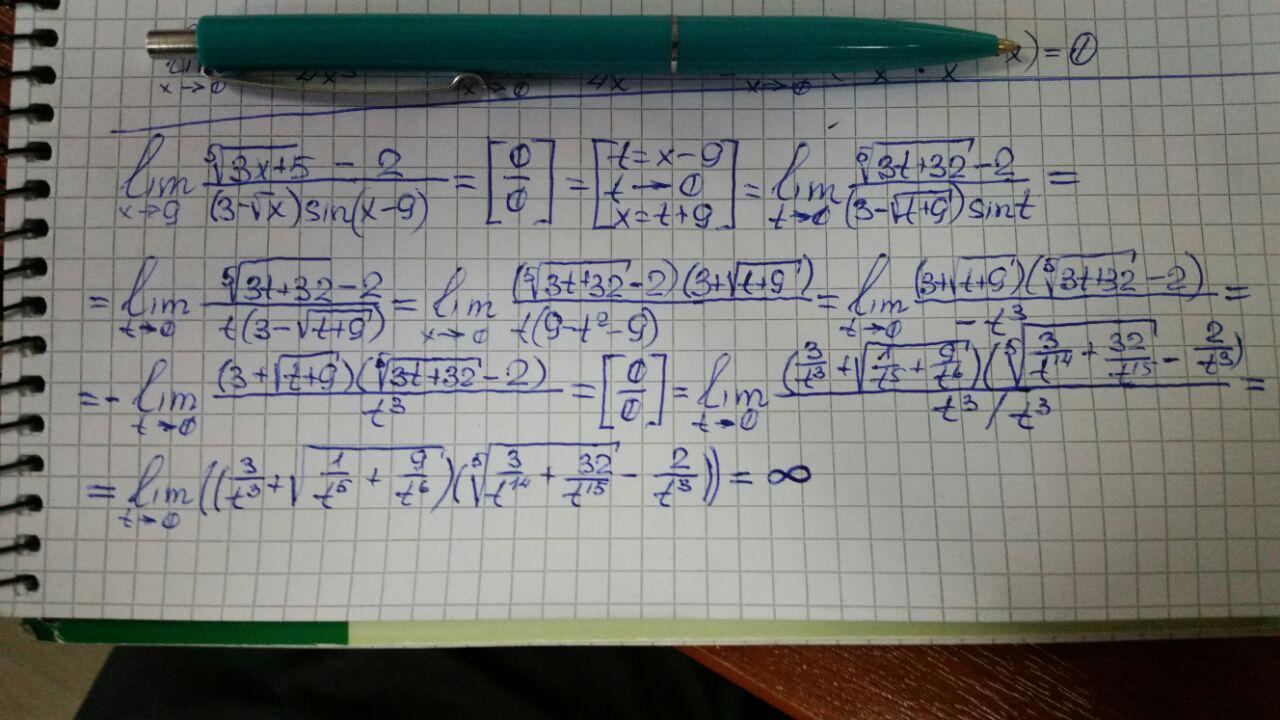 x→0 4x x→0 4x x→0 x · x x) = 0
lim x→9 (⁵√(3x+5) - 2)/((3-√x) sin(x-9)) = [0/0] = [t = x-9 t→0 x = t+9] = lim t→0 (⁵√(3t+32) - 2)/((3-√(t+9)) sin t) =
= lim t→0 (⁵√(3t+32) - 2)/(t(3-√(t+9))) = lim x→0 ((⁵√(3t+32) - 2)(3+√(t+9)))/(t(9-t²-9)) = lim t→0 ((3+√(t+9))(⁵√(3t+32) - 2))/(-t³) =
= - lim t→0 ((3+√(t+9))(⁵√(3t+32) - 2))/t³ = [0/0] = lim t→0 ((3/t³ + √(1/t⁵ + 9/t⁶))(⁵√(3/t¹⁴ + 32/t¹⁵) - 2/t³))/(t³/t³) =
= lim t→0 ((3/t³ + √(1/t⁵ + 9/t⁶))(⁵√(3/t¹⁴ + 32/t¹⁵) - 2/t³)) = ∞